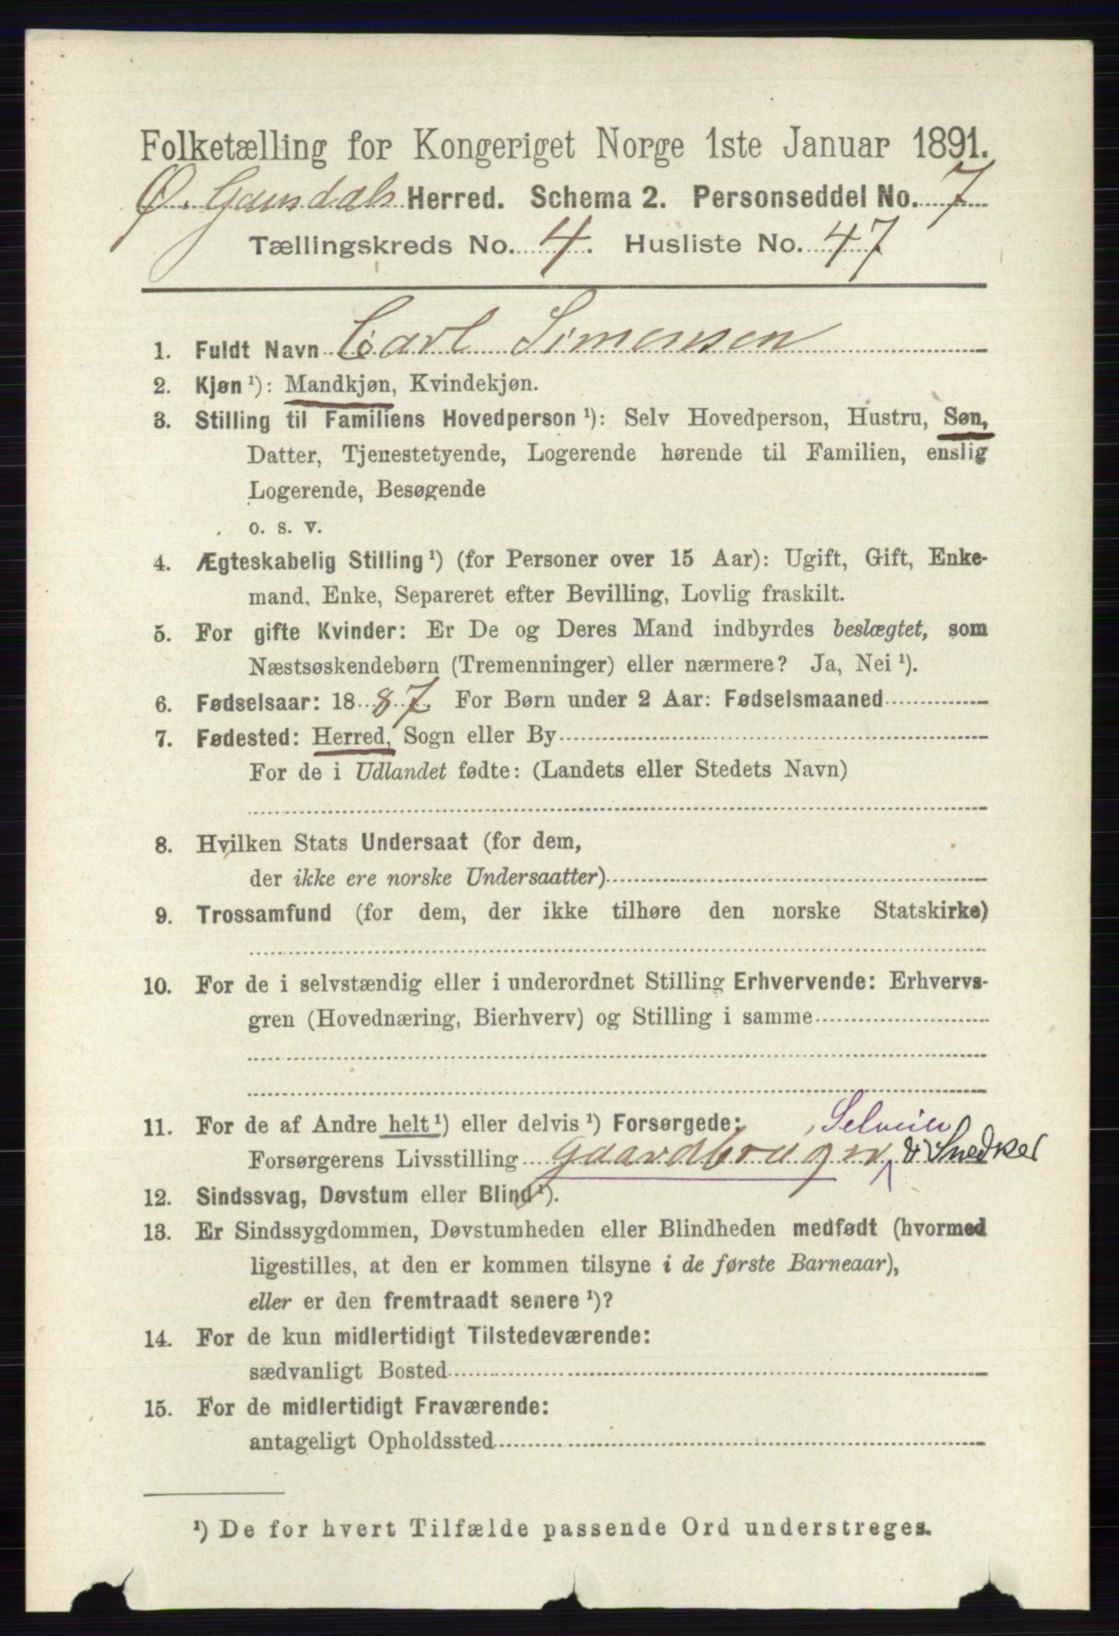 Folketælling for Kongeriget Norge 1ste Januar 1891.
Ø. Gausdals Herred. Schema 2. Personseddel No. 7
Tællingskreds No. 4. Husliste No. 47
1. Fuldt Navn Carl Simensen
2. Kjøn ¹): Mandkjøn, Kvindekjøn.
3. Stilling til Familiens Hovedperson ¹): Selv Hovedperson, Hustru, Søn,
Datter, Tjenestetyende, Logerende hørende til Familien, enslig
Logerende, Besøgende
o. s. v.
4. Ægteskabelig Stilling ¹) (for Personer over 15 Aar): Ugift, Gift, Enke-
mand, Enke, Separeret efter Bevilling, Lovlig fraskilt.
5. For gifte Kvinder: Er De og Deres Mand indbyrdes beslægtet, som
Næstsøskendebørn (Tremenninger) eller nærmere? Ja, Nei ¹).
6. Fødselsaar: 1887. For Børn under 2 Aar: Fødselsmaaned
7. Fødested: Herred, Sogn eller By
For de i Udlandet fødte: (Landets eller Stedets Navn)
8. Hvilken Stats Undersaat (for dem,
der ikke ere norske Undersaatter)
9. Trossamfund (for dem, der ikke tilhøre den norske Statskirke)
10. For de i selvstændig eller i underordnet Stilling Erhvervende: Erhvervs-
gren (Hovednæring, Bierhverv) og Stilling i samme
11. For de af Andre helt ¹) eller delvis ¹) Forsørgede: Selveier
Forsørgerens Livsstilling Gaardbruger & Snedker
12. Sindssvag, Døvstum eller Blind ¹).
13. Er Sindssygdommen, Døvstumheden eller Blindheden medfødt (hvormed
ligestilles, at den er kommen tilsyne i de første Barneaar),
eller er den fremtraadt senere ¹)?
14. For de kun midlertidigt Tilstedeværende:
sædvanligt Bosted
15. For de midlertidigt Fraværende:
antageligt Opholdssted
¹) De for hvert Tilfælde passende Ord understreges.